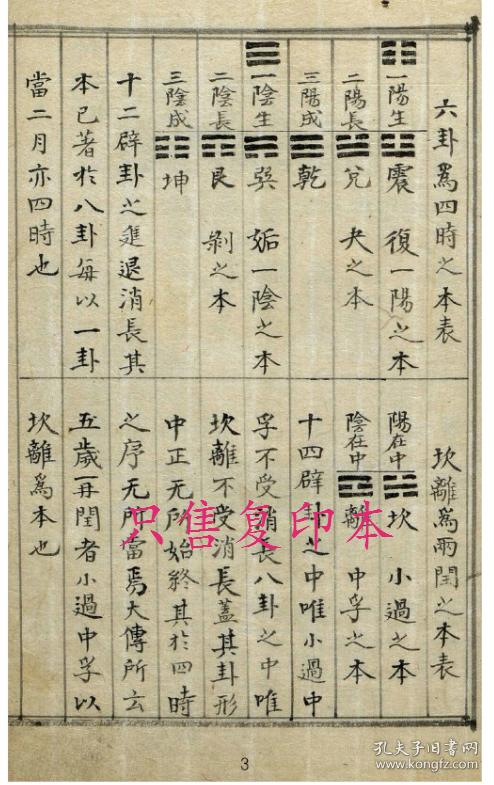 六卦爲四時之本表
一陽生 震 復一陽之本
二陽長 兌 夬之本
三陽成 乾
一陰生 巽 姤一陰之本
二陰長 艮 剝之本
三陰成 坤
十二辟卦之進退消長其
本已著於八卦每以一卦
當二月亦四時也
坎離爲兩閏之本表
陽在中 坎 小過之本
陰在中 離 中孚之本
十四辟卦之中唯小過中
孚不受消長八卦之中唯
坎離不受消長蓋其卦形
中正无所始終其於四時
之序无所當焉大傳所云
五歲再閏者小過中孚以
坎離爲本也
只售复印本
3
孔夫子旧书网
www.kongfz.com